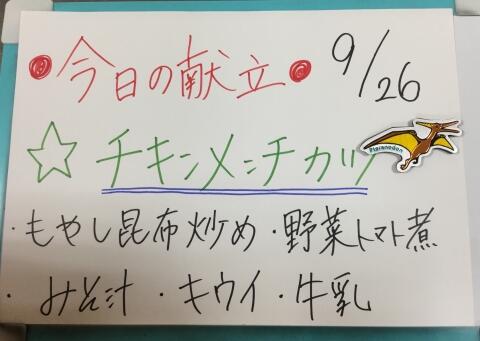 ●今日の献立● 9/26
☆チキンメンチカツ
Pteranodon
・もやし昆布炒め・野菜トマト煮
・みそ汁・キウイ・牛乳